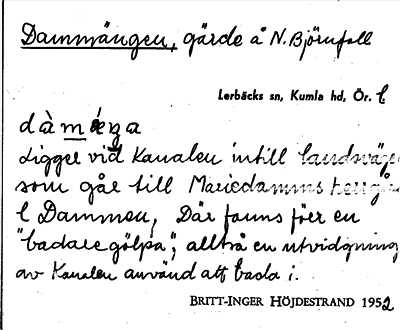 Dammängen, gärde å N. Björnfall
Lerbäcks sn, Kumla hd, Ör. l
dàmǽŋa
Ligger vid Kanalen intill landsväge
som går till Mariedamms
l Dammen, Där fanns förr en
"badaregölpa", alltså en utvidgning
av Kanalen använd att bada i.
BRITT-INGER HÖJDESTRAND 1952